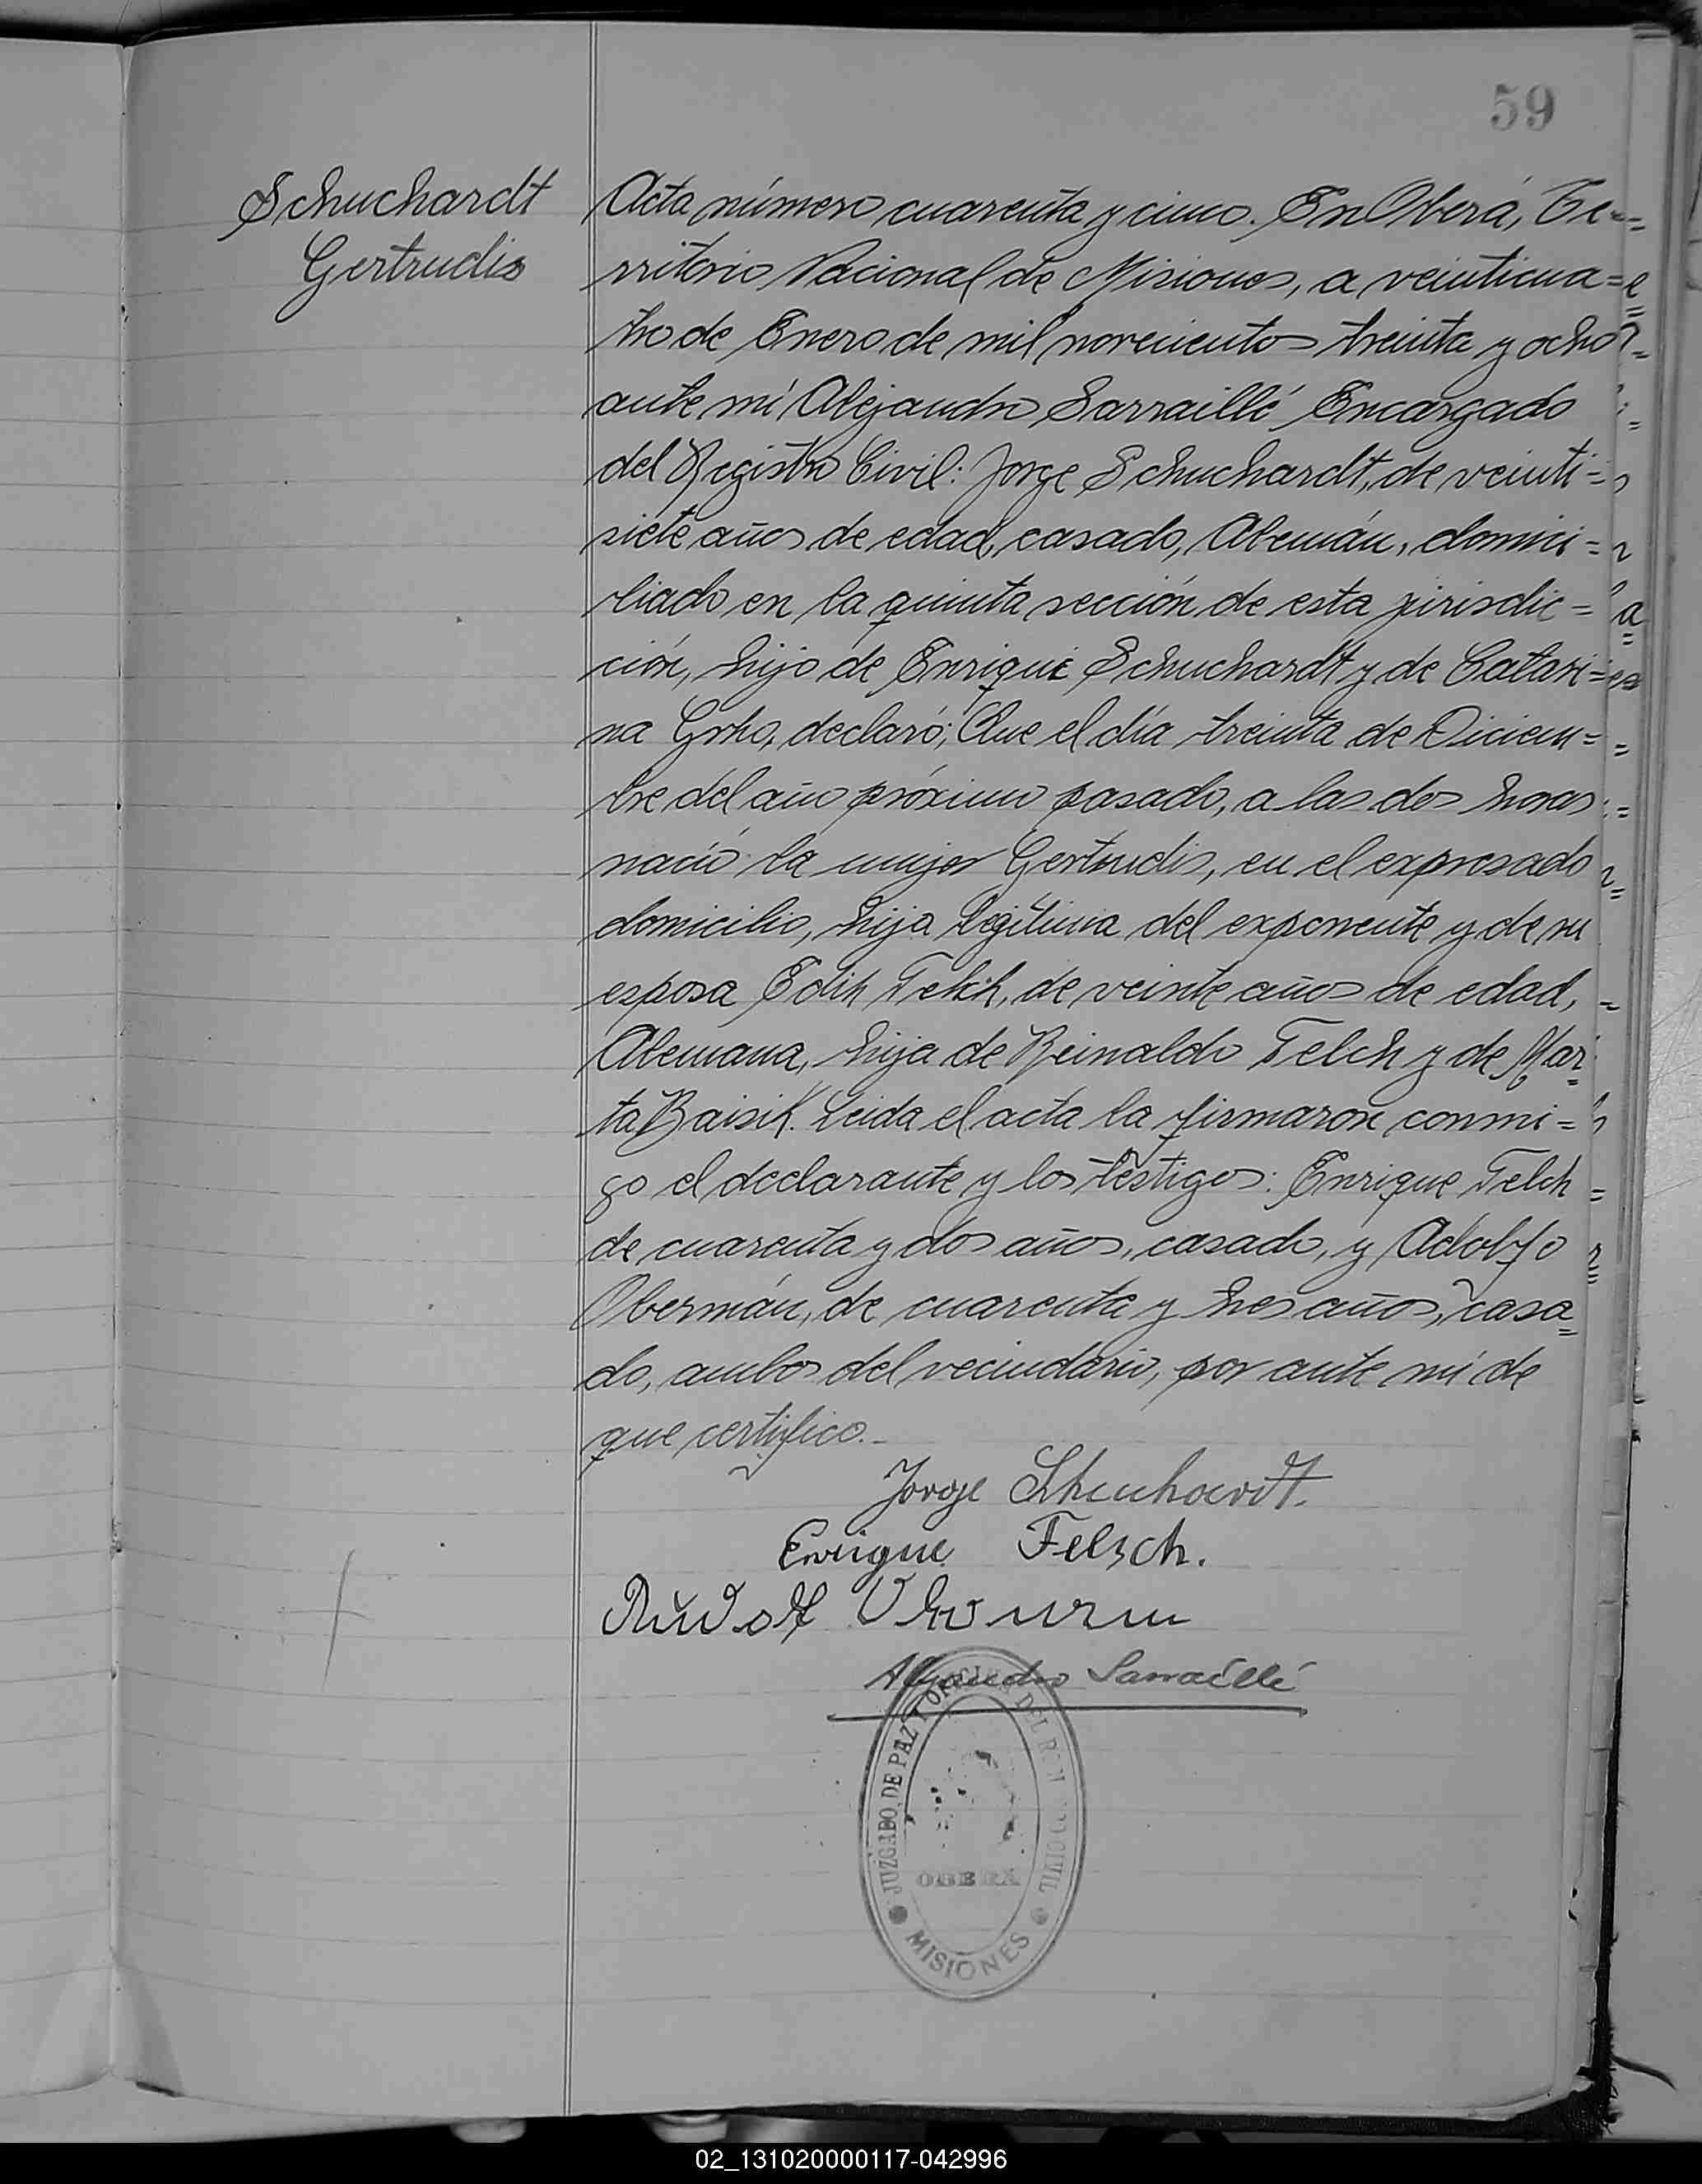 59
Schuchardt
Gertrudis
Acta número cuarenta y cinco. En Oberá, Te=
rritorio Nacional de Misiones, a veinticua=
tro de Enero de mil novecientos treinta y ocho
ante mí Alejandro Sarraillé Encargado
del Registro Civil: Jorge Schuchardt, de veinti=
siete años de edad, casado, Alemán, domici=
liado en la quinta sección de esta jirisdic=
ción, hijo de Enrique Schuchardt y de Catari=
na Grho, declaró; Que el día treinta de Diciem=
bre del año próximo pasado, a las dos horas
nació la mujer Gertrudis, en el expresado
domicilio, hija legítima del exponente y de su
esposa Edith Felch, de veinte años de edad,
Alemana, hija de Reinaldo Felch y de Mar=
ta Baisik. Leida el acta la firmaron conmi=
go el declarante y los testigos: Enrique Felch
de cuarenta y dos años, casado, y Adolfo
Obermán, de cuarenta y tres años, casa=
do, ambos del vecindario, por ante mí de
que certifico.-
Jorge Schuchardt.
Enrique Felsch.
Alejandro Sarraillé
JUZGADO DE PAZ Y OFICINA DEL REGISTRO CIVIL
OBERÁ
MISIONES
02_131020000117-042996